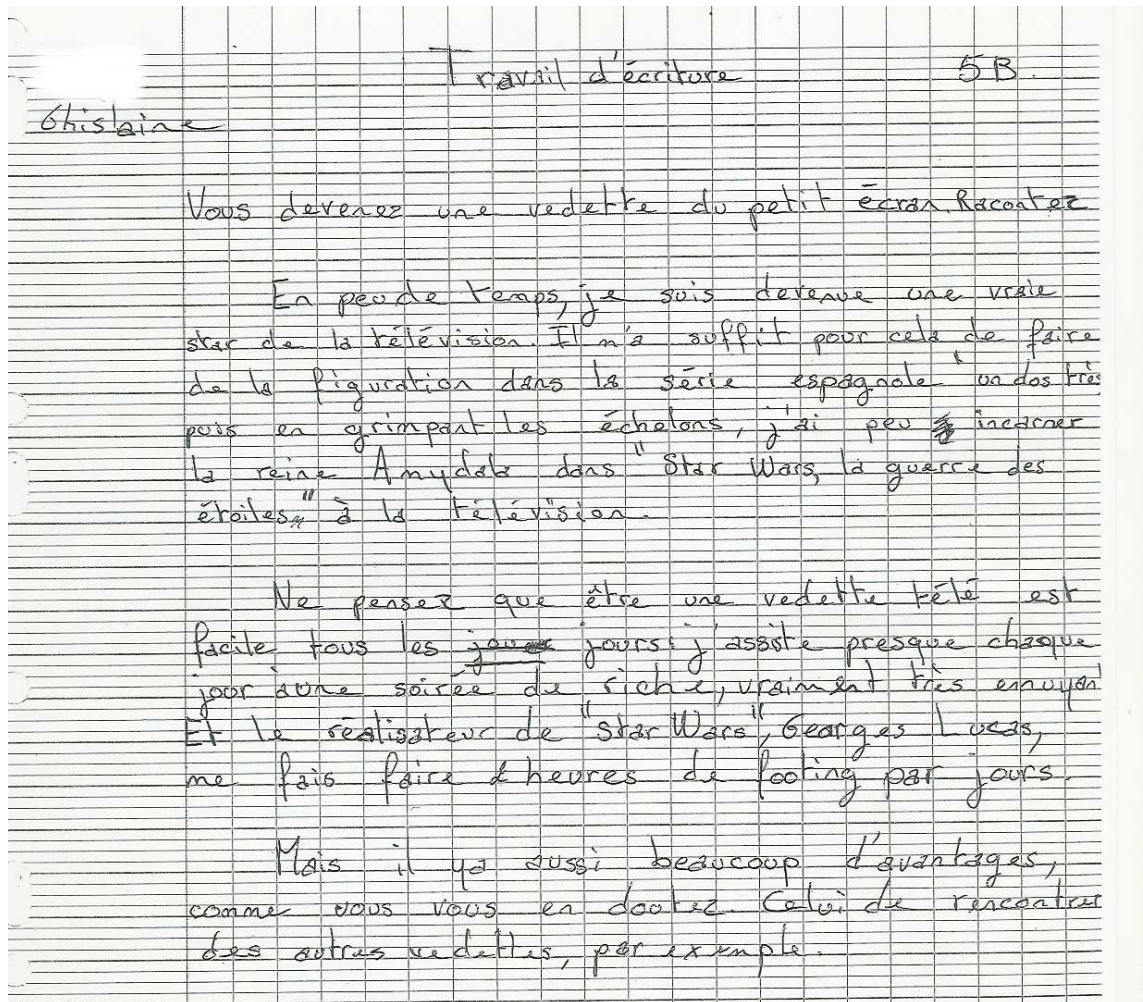 Travail d'écriture 5B.
Ghislaine
Vous devenez une vedette du petit écran. Racontez
En peu de temps, je suis devenue une vraie
star de la télévision. Il m'a suffit pour cela de faire
de la figuration dans la série espagnole " un dos très
puis en grimpant les échelons, j'ai peu incarner
la reine Amydala dans "Star Wars, la guerre des
étoiles" à la télévision.
Ne pensez que être une vedette télé est
facile tous les jours : j'assite presque chaque
jour à une soirée de riche, vraiment très ennuyan
Et le réalisateur de "Star Wars", Georges Lucas,
me fais faire heures de footing par jours.
Mais il y a aussi beaucoup d'avantages,
comme vous vous en doutez. Celui de rencontrer
des autres vedettes, par exemple.